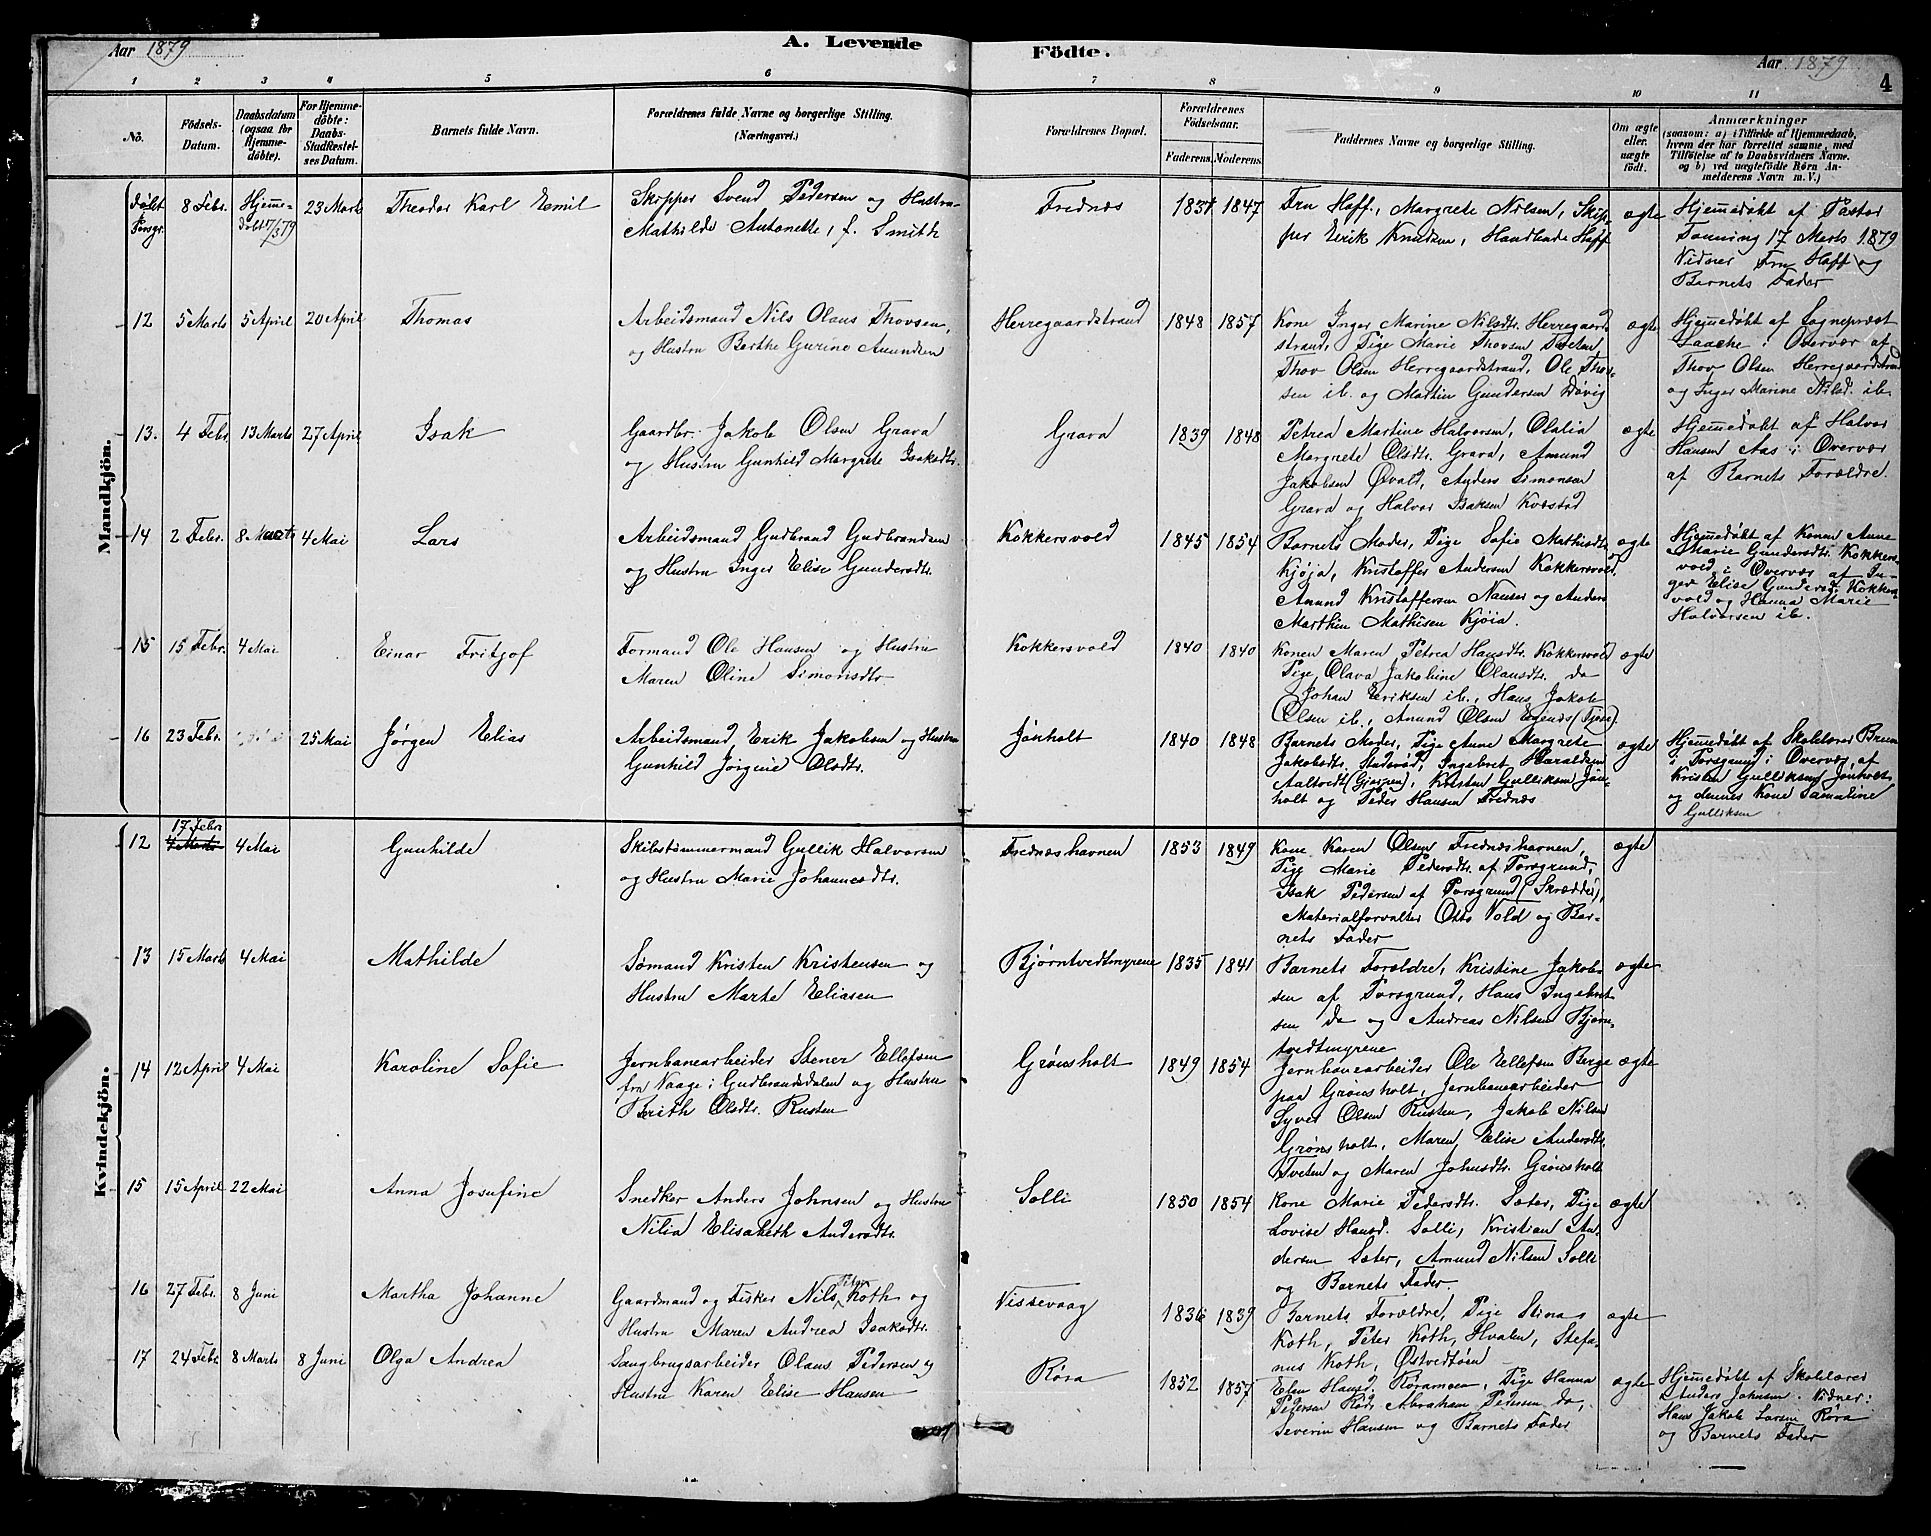 Aar 1879
A. Levende Födte.
Aar 1879
4
1 2 3 4 5 6 7 8 9 10 11
No.
Födsels-
Datum.
Daabsdatum
(ogsaa for
Hjemme-
döbte).
For Hjemme-
döbte:
Daabs-
Stadfestel-
ses Datum.
Barnets fulde Navn.
Forældrenes fulde Navne og borgerlige Stilling.
(Næringsvei.)
Forældrenes Bopæl.
Forældrenes
Födselsaar.
Faderens. Moderens.
Faddernes Navne og borgerlige Stilling.
Om ægte
eller
uægte
födt.
Anmærkninger
(saasom: a) i Tilfælde af Hjemmedaab,
hvem der har forrettet samme, med
Tilföielse af to Daabsvidners Navne.
og b) ved uægtefödte Börn An-
melderens Navn m. V.)
Mandkjön.
Döbt
Porsgr.
8 Febr.
Hjeme-
döbt 17/3 79
23 Marts
Theodor Karl Emil
Skipper Svend Pedersen og Hustru
Mathilde Antonette, f. Smith
Frednæs
1837 1847
Fru Hoff, Margrete Nilsen, Skip-
per Erik Knudsen, Handlende Hoff
ægte
Hjemedøbt af Pastor
Tønning 17 Marts 1879
Vidner Fru Hoff og
Barnets Fader
12 5 Marts 5 April 20 April
Thomas
Arbeidsmand Nils Olaus Thovsen,
og Hustru Berthe Gurine Amundsen
Herregaardstrand
1848 1857
Kone Inger Marine Nilsdtr. Herregaard-
strand, Pige Marie Thovsen Tveten
Thov Olsen Herregaardstrand, Ole Thov-
sen ib. og Martin Gundersen Døvig
ægte
Hjemedøbt af Sogneprest
Laache i Overvær af
Thov Olsen Herregaardstrand
og Inger Marine Nilsd. ib.
13. 4 Febr 13 Marts 27 April
Isak
Gaardbr. Jakob Olsen Grava
og Hustru Gunhild Margrete Isaksdtr.
Grava
1839 1848
Petrea Martine Halvorsen, Olalia
Margrete Olsdtr. Grava, Amund
Jakobsen Øvald, Anders Simonsen
Grava og Halvor Isaksen Kvæstad
ægte
Hjemedøbt af Halvor
Hansen Aas i Overvær
af Barnets Forældre.
14 2 Febr. 8 Marts 4 Mai
Lars
Arbeidsmand Gudbrand Gudbrandsen
og Hustru Inger Elise Gundersdtr.
Kokkersvold
1845 1854
Barnets Moder, Pige Sofie Mathisdtr.
Kjøja, Kristoffer Andersen Kokkersvold,
Amund Kristoffersen Nauser og Anders
Marthin Mathisen Kjøia.
ægte
Hjemedøbt af Konen Anne
Marie Gundersdtr. Kokkers-
vold i Overvær af In-
ger Elise Gundersd. Kokkers-
vold og Hanna Marie
Halvorsen ib.
15 15 Febr. 4 Mai
Einar Fritjof
Formand Ole Hansen og Hustru
Maren Oline Simonsdtr.
Kokkersvold
1840 1840
Konen Maren Petrea Hansdtr. Kokkersvold
Pige Olava Jakobine Olausdtr. do
Johan Eriksen ib., Hans Jakob
Olsen ib., Amund Olsen
ægte
16 23 Febr. 25 Mai
Jørgen Elias
Arbeidsmand Erik Jakobsen og Hustru
Gunhild Jørgine Olsdtr.
Jønholt
1840 1848
Barnets Moder, Pige Anne Margrete
Jakobsdtr. Stadsvad, Ingebret Haraldsen
Aaltvedt (Gjerpen), Kristen Gulliksen Jøn-
holt og Peder Hansen Frednæs
ægte
Hjemedøbt af Skolelærer Bruun
i Porsgrund i Overvær af
Kristen Gulliksen Jønholt
og dennes Kone Samueline
Gulliksen
Kvindekjön.
17 Febr
12 4 Marts 4 Mai
Gunhilde
Skibstømmermand Gullik Halvorsen
og Hustru Marie Johannesdtr.
Frednæshavnen
1853 1849
Kone Karen Olsen Frednæshavnen,
Pige Marie Pedersdtr. af Porsgrund,
Isak Pedersen af Porsgrund (Skrædder),
Materialforvalter Otto Vold og Bar-
nets Fader
ægte
13 15 Marts 4 Mai
Mathilde
Sømand Kristen Kristensen og
Hustru Marte Eliasen
Bjørntvedtmyrene
1835 1841
Barnets Forældre, Kristine Jakob-
sen af Porsgrund, Hans Ingebret-
sen do og Andreas Nilsen Bjørn-
tvedtmyrene
ægte
14 12 April 4 Mai
Karoline Sofie
Jernbanearbeider Stener Ellefsen
fra Vaage i Gudbrandsdalen og Hustru
Berith Olsdtr. Rusten
Grønsholt
1849 1854
Jernbanearbeider Ole Ellefsen Berge
paa Grønsholt, Jernbanearbeider
Syver Olsen Rusten, Jakob Nilsen
Grønsholt, Maren Elise Andersdtr.
Tveten og Maren Johnsdtr. Grønsholt
ægte
15 15 April 22 Mai
Anna Josefine
Snedker Anders Johnsen og Hustru
Nilia Elisabeth Andersdtr.
Solli
1850 1854
Kone Marie Pedersdtr. Sæter, Pige
Lovise Hansd. Solli, Kristian An-
dersen Sæter, Amund Nilsen Solli
og Barnets Fader.
ægte
16 27 Febr. 8 Juni
Martha Johanne
Gaardmand og Fisker Nils Peter Koth og
Hustru Maren Andrea Isaksdtr.
Vissevaag
1836 1839
Barnets Forældre, Pige Stina
Koth, Peter Koth, Hvalen, Stefa-
nus Koth, Østvedtøen
ægte
17 24 Febr 8 Marts 8 Juni
Olga Andrea
Saugbrugsarbeider Olaus Pedersen og
Hustru Karen Elise Hansen
Røra
1852 1857
Elen Hansd. Røramoen, Pige Hanna
Pedersen Rød, Abraham Pedersen do,
Severin Hansen og Barnets Fader
ægte
Hjemedøbt af Skolelærer
Anders Johnsen. Vidner:
Hans Jakob Larsen Røra
og Barnets Fader